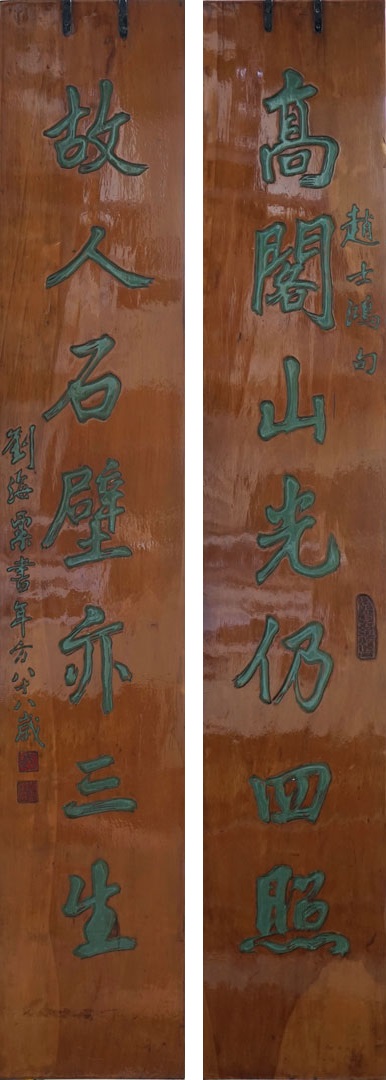 趙士鴻句
高閣山光仍四照
故人石壁亦三生
劉海粟書年方八十八歲